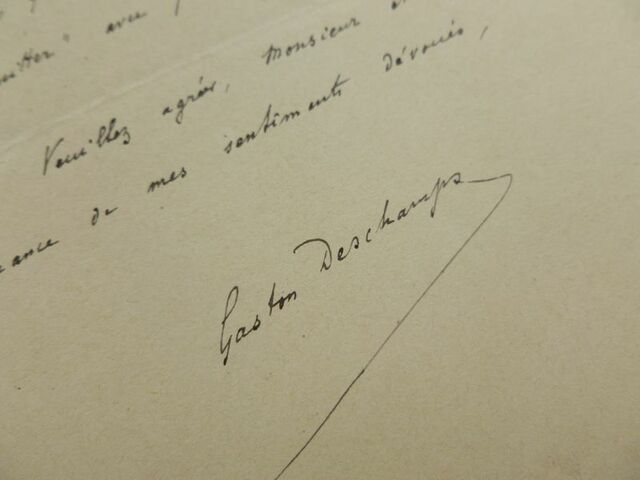 avec
Veuillez agréer, Monsieur
de mes sentiments dévoués,
Gaston Deschamps